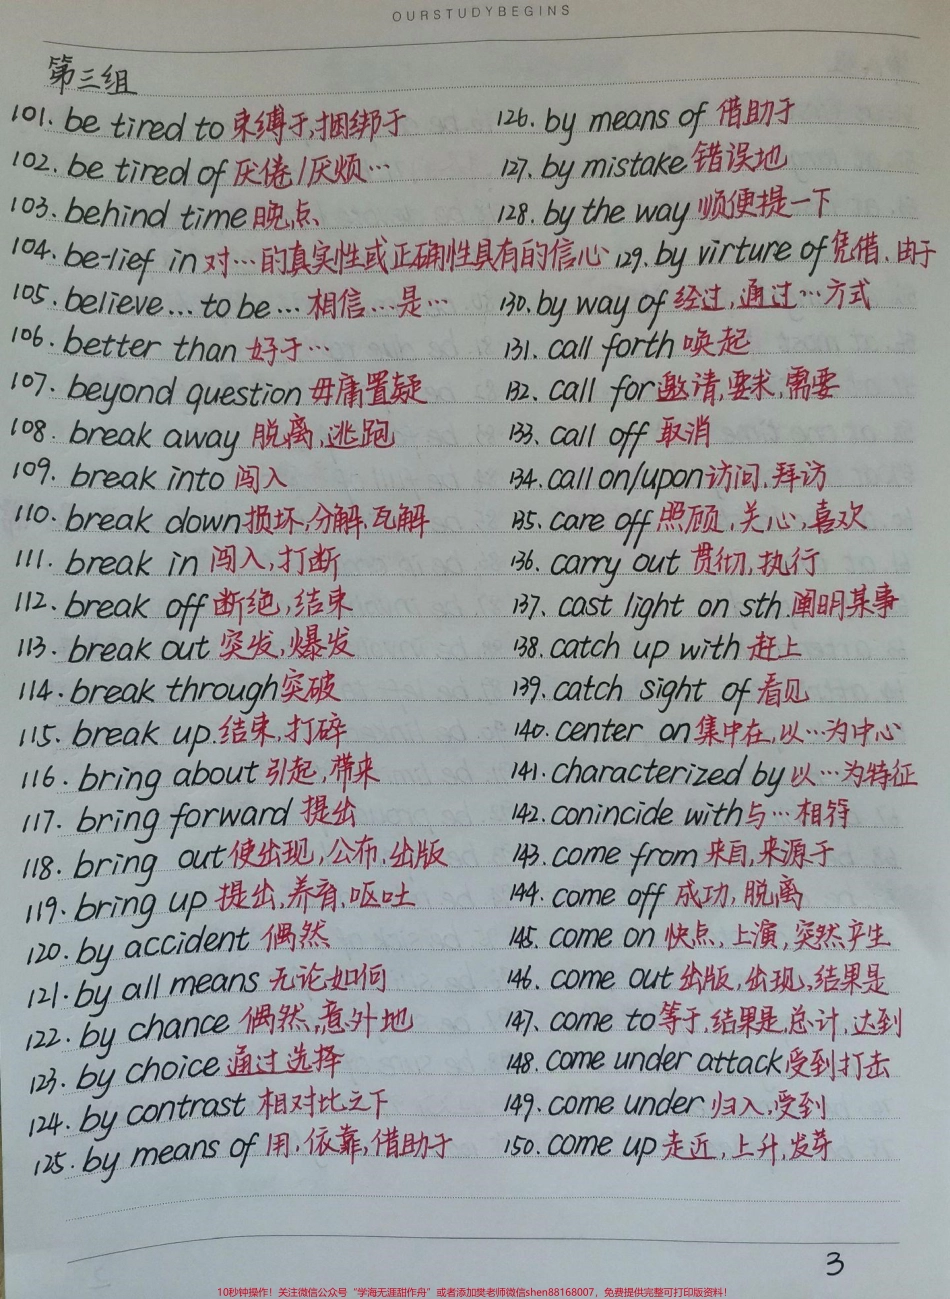 OURSTUDYBEGINS
第三组
101. be tired to 束缚于,捆绑于
102. be tired of 厌倦/厌烦…
103. behind time 晚点
104. be-lief in 对…的真实性或正确性具有的信心
105. believe... to be... 相信…是…
106. better than 好于…
107. beyond question 毋庸置疑
108. break away 脱离,逃跑
109. break into 闯入
110. break down 损坏,分解,瓦解
111. break in 闯入,打断
112. break off 断绝,结束
113. break out 突发,爆发
114. break through 突破
115. break up 结束,打碎
116. bring about 引起,带来
117. bring forward 提出
118. bring out 使出现,公布,出版
119. bring up 提出,养育,呕吐
120. by accident 偶然
121. by all means 无论如何
122. by chance 偶然,意外地
123. by choice 通过选择
124. by contrast 相对比之下
125. by means of 用,依靠,借助于
126. by means of 借助于
127. by mistake 错误地
128. by the way 顺便提一下
129. by virture of 凭借、由于
130. by way of 经过,通过…方式
131. call forth 唤起
132. call for 邀请,要求,需要
133. call off 取消
134. call on/upon 访问,拜访
135. care off 照顾,关心,喜欢
136. carry out 贯彻,执行
137. cast light on sth. 阐明某事
138. catch up with 赶上
139. catch sight of 看见
140. center on 集中在,以…为中心
141. characterized by 以…为特征
142. conincide with 与…相符
143. come from 来自,来源于
144. come off 成功,脱离
145. come on 快点,上演,突然产生
146. come out 出版,出现,结果是
147. come to 等于,结果是,总计,达到
148. come under attack 受到打击
149. come under 归入,受到
150. come up 走近,上升,发芽
3
10秒钟操作！关注微信公众号“学海无涯甜作舟”或者添加樊老师微信shen88168007，免费提供完整可打印版资料！